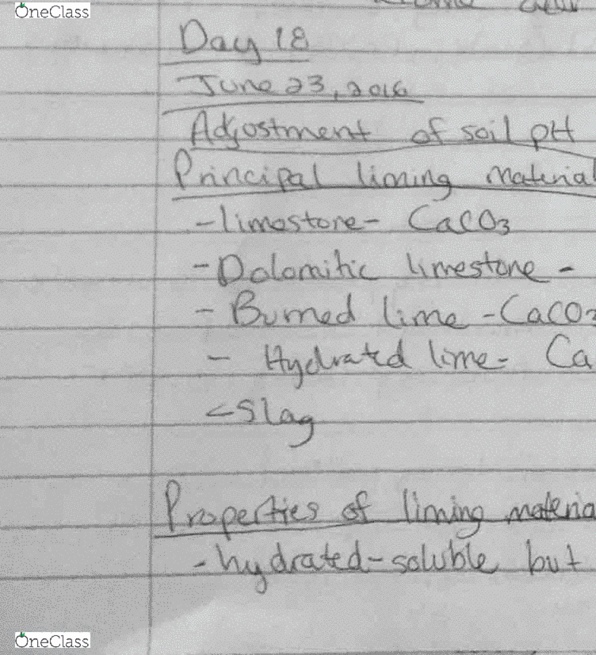 OneClass
Day 18
June 23, 2016
Adjostment of soil pH
Principal liming material
-limestone- CaCO3
-Dolomitic limestone -
- Burned lime -CaCO3
- Hydrated lime- Ca
-Slag
Properties of liming materia
-hydrated-soluble but
OneClass